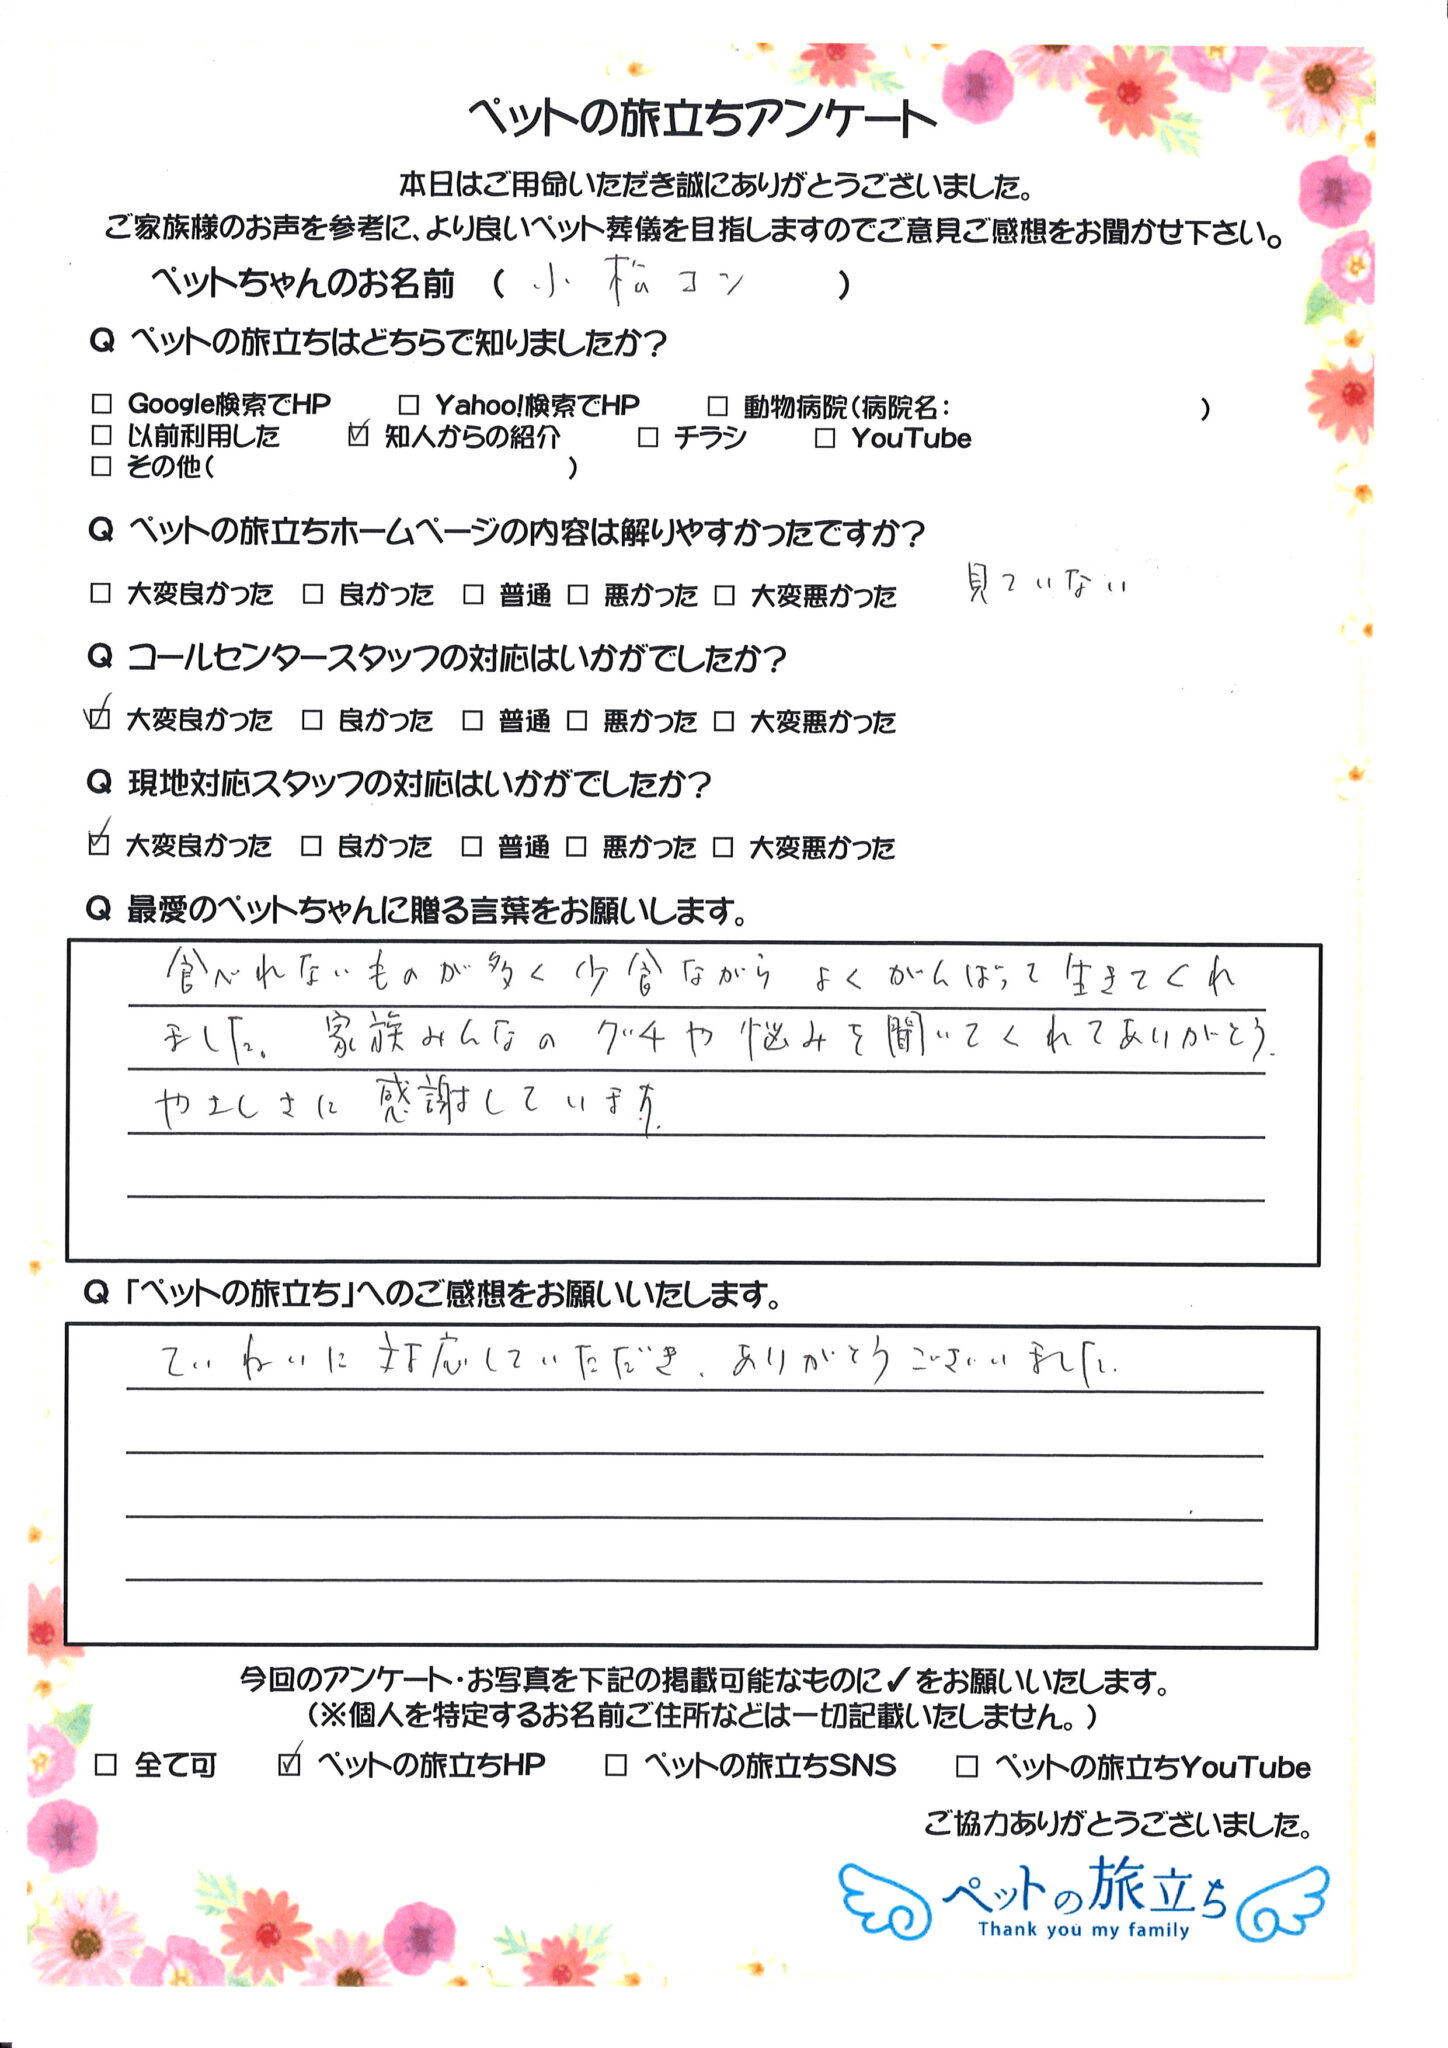 ペットの旅立ちアンケート
本日はご用命いただき誠にありがとうございました。
ご家族様のお声を参考に、より良いペット葬儀を目指しますのでご意見ご感想をお聞かせ下さい。
ペットちゃんのお名前 （ 小松コン ）
Q ペットの旅立ちはどちらで知りましたか？
□ Google検索でHP □ Yahoo!検索でHP □ 動物病院（病院名： ）
□ 以前利用した ☑ 知人からの紹介 □ チラシ □ YouTube
□ その他（ ）
Q ペットの旅立ちホームページの内容は解りやすかったですか？
□ 大変良かった □ 良かった □ 普通 □ 悪かった □ 大変悪かった 見ていない
Q コールセンタースタッフの対応はいかがでしたか？
☑ 大変良かった □ 良かった □ 普通 □ 悪かった □ 大変悪かった
Q 現地対応スタッフの対応はいかがでしたか？
☑ 大変良かった □ 良かった □ 普通 □ 悪かった □ 大変悪かった
Q 最愛のペットちゃんに贈る言葉をお願いします。
食べれないものが多く少食ながら よくがんばって生きてくれ
ました。 家族みんなの グチや 悩みを聞いてくれてありがとう.
やさしさに 感謝しています.
Q 「ペットの旅立ち」へのご感想をお願いいたします。
ていねいに対応していただき、ありがとうございました.
今回のアンケート・お写真を下記の掲載可能なものに✓をお願いいたします。
（※個人を特定するお名前ご住所などは一切記載いたしません。）
□ 全て可 ☑ ペットの旅立ちHP □ ペットの旅立ちSNS □ ペットの旅立ちYouTube
ご協力ありがとうございました。
ペットの旅立ち
Thank you my family